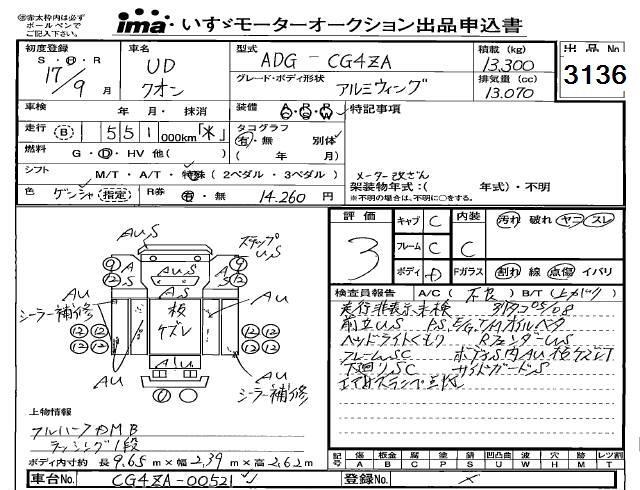 ㊟赤太枠内は必ず
ボールペンで
ご記入下さい。
ima いすゞモーターオークション出品申込書
出品No
3136
初度登録
S・H・R
17/9月
車名
UD
クオン
型式
ADG-CG4ZA
グレード・ボディ形状
アルミウィング
積載(kg)
13.300
排気量(cc)
13.070
車検 年・月・抹消
装備
特記事項
走行 B 1 551 000km「米」
タコグラフ
有・無 別体
( 年 月)
燃料 G・D・HV 他( )
シフト M/T・A/T・特殊(2ペダル・3ペダル)
メーター改ざん
架装物年式:( 年式)・不明
※不明の場合は、不明に○をする。
色 ゲンシャ 指定
R券 有・無 14.260円
評価
3
キャブ C
フレーム C
ボディ D
内装
C
Fガラス
汚れ 破れ ヤニ スレ
割れ 線 点傷 イバリ
AUS
ステップ
US
9
9
9
9
A
S
A
S
AUS
AU
AU
シーラー補修
板
ケズレ
12
12
12
12
12
12
12
12
AU
AU
AU
シーラー補修
検査員報告 A/C(不良) B/T(上がりC)
走行非表示未検
前立US P.S,E/G,T/Mオイルベタ
ヘッドライトくもり RフェンダーUS
フレームSC
下廻りSC サイドガードS
上物情報
フルハーフ DMB
ラッシング1段
ボディ内寸約 長9.65m×幅2.39m×高2.62m
記号
傷 A
板金 B
腐 C
塗 P
錆 S
凹凸曲 U
波 W
穴 H
レツ割 T
車台No. CG4ZA-00521
登録No. ×